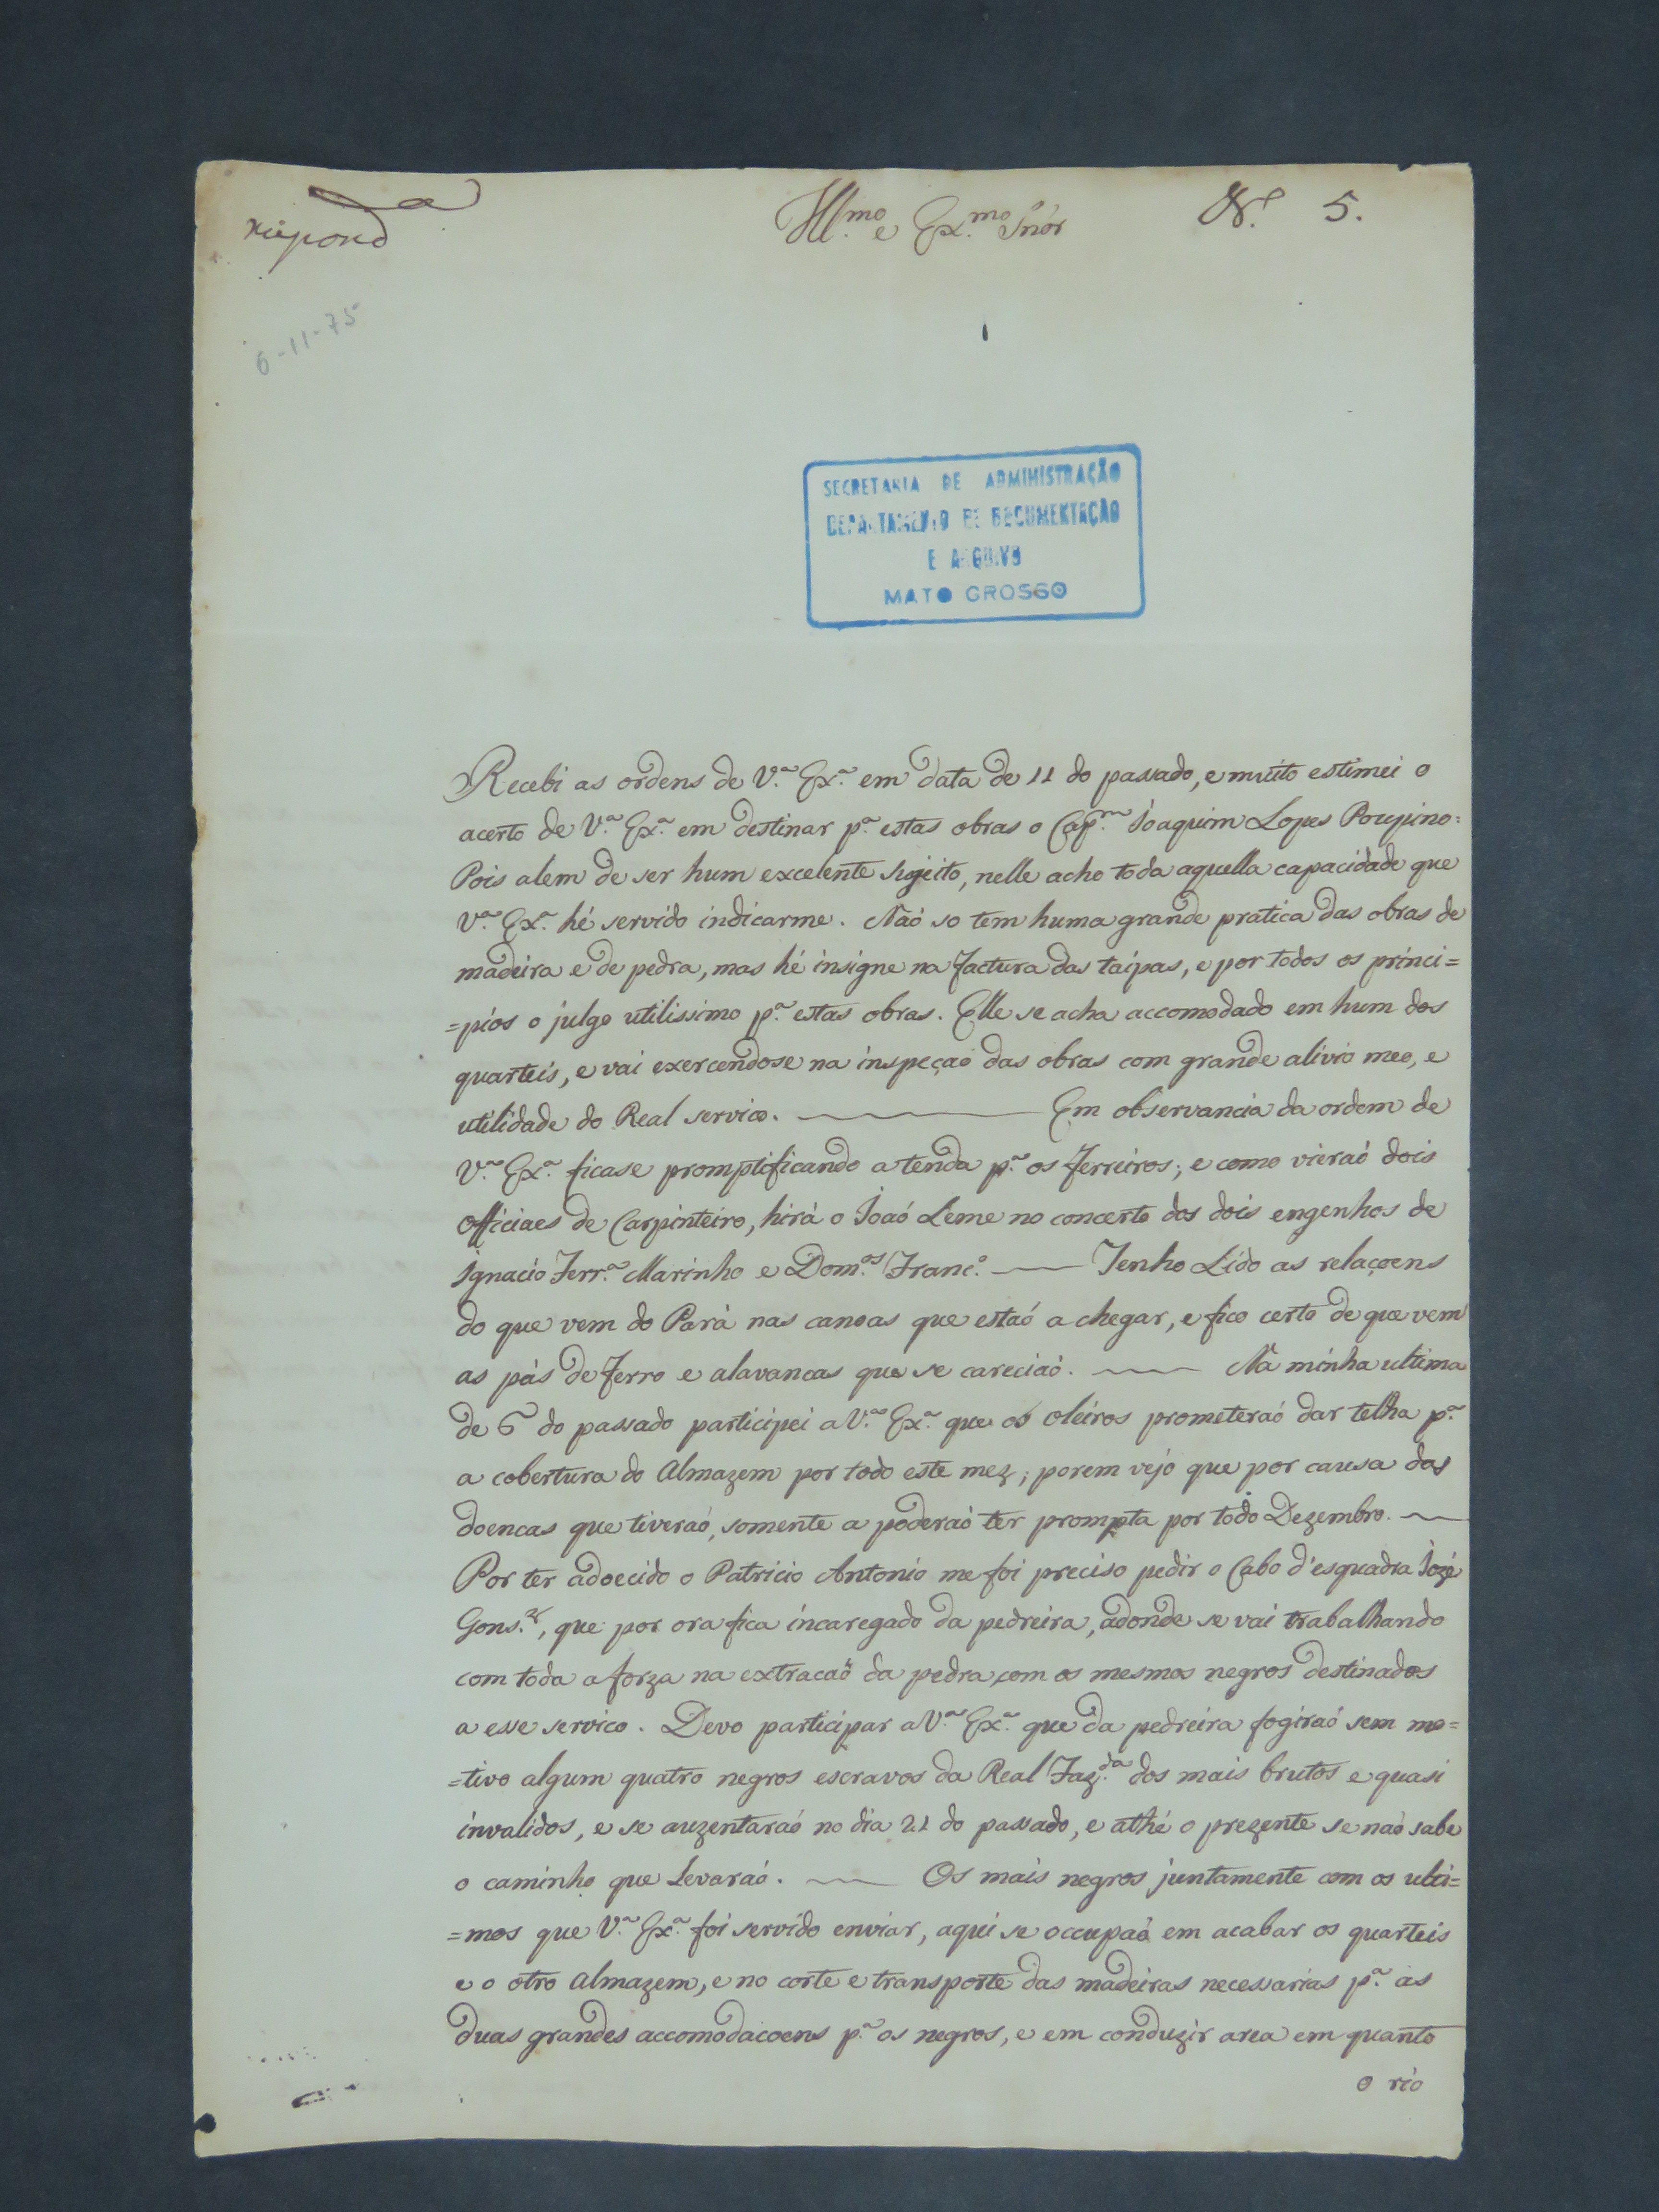 respond.da
Ill.mo e Ex.mo Snõr
N.º 5.
6-11-75
SECRETARIA DE ADMINISTRAÇÃO
DEPARTAMENTO DE DOCUMENTAÇÃO
E ARQUIVO
MATO GROSSO
Recebi as ordens de V.ª Ex.ª em data de 11 do passado, e muito estimei o
acerto de V.ª Ex.ª em destinar p.ª estas obras o Cap.m Joaquim Lopes Poupino:
Pois alem de ser hum excelente sugeito, nelle acho toda aquella capacidade que
V.ª Ex.ª hé servido indicarme. Naó so tem huma grande pratica das obras de
madeira e de pedra, mas hé insigne na factura das taipas, e por todos os princi=
=pios o julgo utilissimo p.ª estas obras. Elle se acha accomodado em hum dos
quarteis, e vai exercendose na inspeçaó das obras com grande alivio meo, e
utilidade do Real servico. Em observancia da ordem de
V.ª Ex.ª ficase promptificando a tenda p.ª os ferreiros; e como vieraó dois
officiaes de Carpinteiro, hirá o Joaó Leme no concerto dos dois engenhos de
Ignacio Ferr.ª Marinho e Dom.os Franc.º Tenho Lido as relaçoens
do que vem do Pará nas canoas que estaó a chegar, e fico certo de que vem
as pás de ferro e alavancas que se careciaó. Na minha ultima
de 6 do passado participei a V.ª Ex.ª que os oleiros prometeraó dar telha p.ª
a cobertura do Almazem por todo este mez; porem vejo que por causa das
doencas que tiveraó, somente a poderaó ter prompta por todo Dezembro.
Por ter adoecido o Patricio Antonio me foi preciso pedir o Cabo d'esquadra Jozé
Gons.z, que por ora fica incaregado da pedreira, adonde se vai trabalhando
com toda a forza na extracaó da pedra com os mesmos negros destinados
a esse servico. Devo participar a V.ª Ex.ª que da pedreira fogiraó sem mo=
=tivo algum quatro negros escravos da Real Faz.da dos mais brutos e quasi
invalidos, e se auzentaraó no dia 21 do passado, e athé o prezente se naó sabe
o caminho que Levaraó. Os mais negros juntamente com os ulti=
=mos que V.ª Ex.ª foi servido enviar, aqui se occupaó em acabar os quarteis
e o otro Almazem, e no corte e transporte das madeiras necessarias p.ª as
duas grandes accomodacoens p.ª os negros, e em conduzir area em quanto
o rio